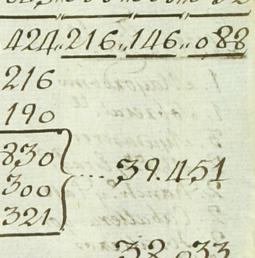 424,,216,,146,,088
216
190
830
300 ....39.451
321